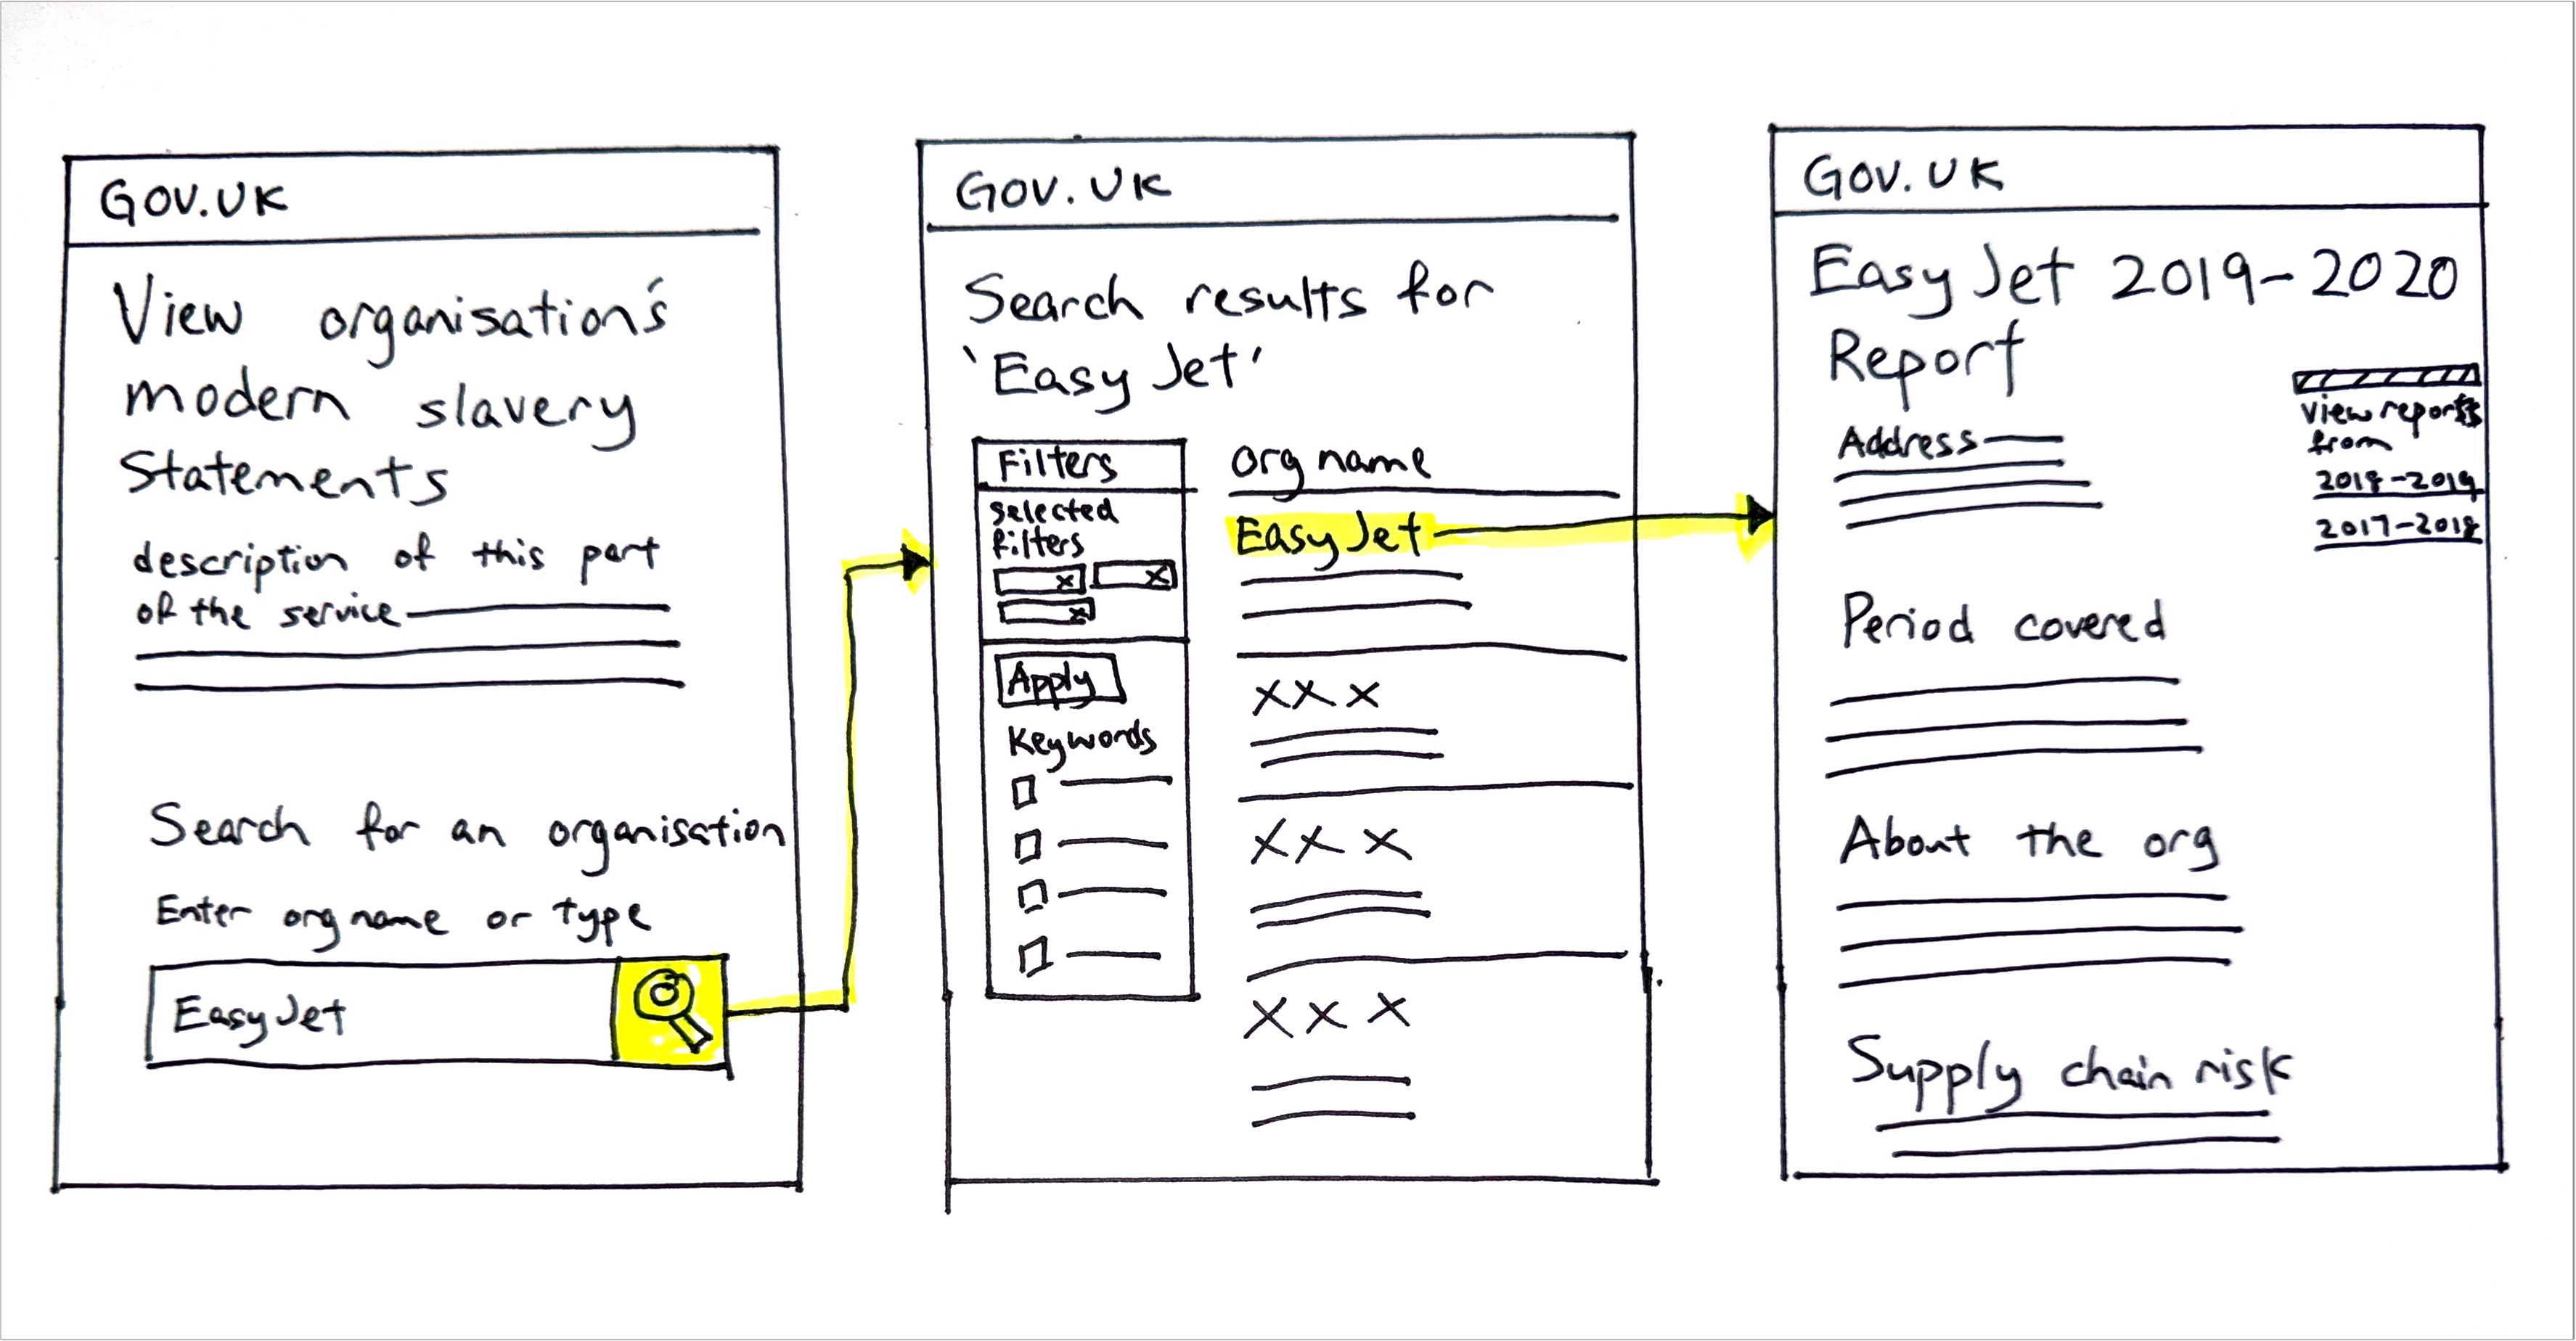 GOV.UK
View organisation's
modern slavery
Statements
description of this part
of the service
Search for an organisation
Enter org name or type
EasyJet
GOV.UK
Search results for
'EasyJet'
Filters
Selected
filters
x x
x
Apply
Keywords
org name
EasyJet
XXX
XXX
XXX
GOV.UK
EasyJet 2019-2020
Report
Address
View reports
from
2018-2019
2017-2018
Period covered
About the org
Supply chain risk